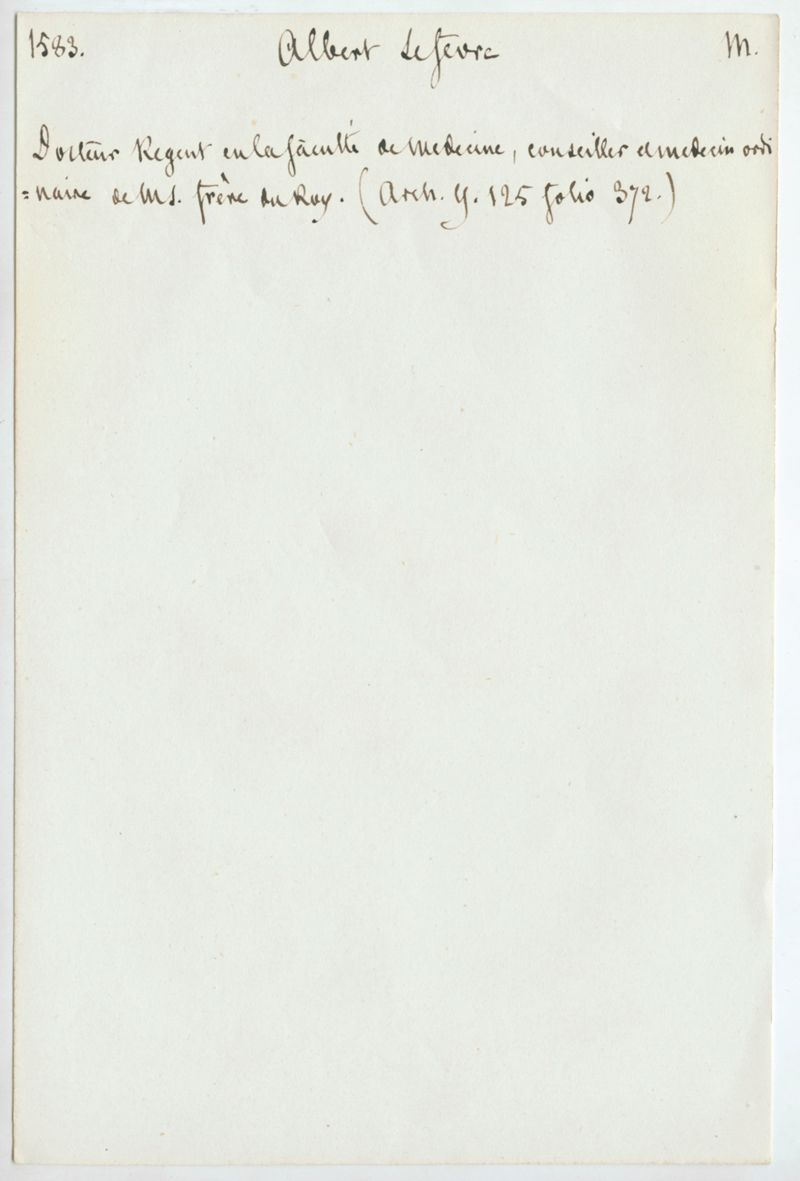 1583. Albert Lefevre M.
Docteur Regent en la faculté de Medecine, conseiller et medecin ordi
=naire de Ms. frère du Roy. (Arch. Y. 125 folio 372.)